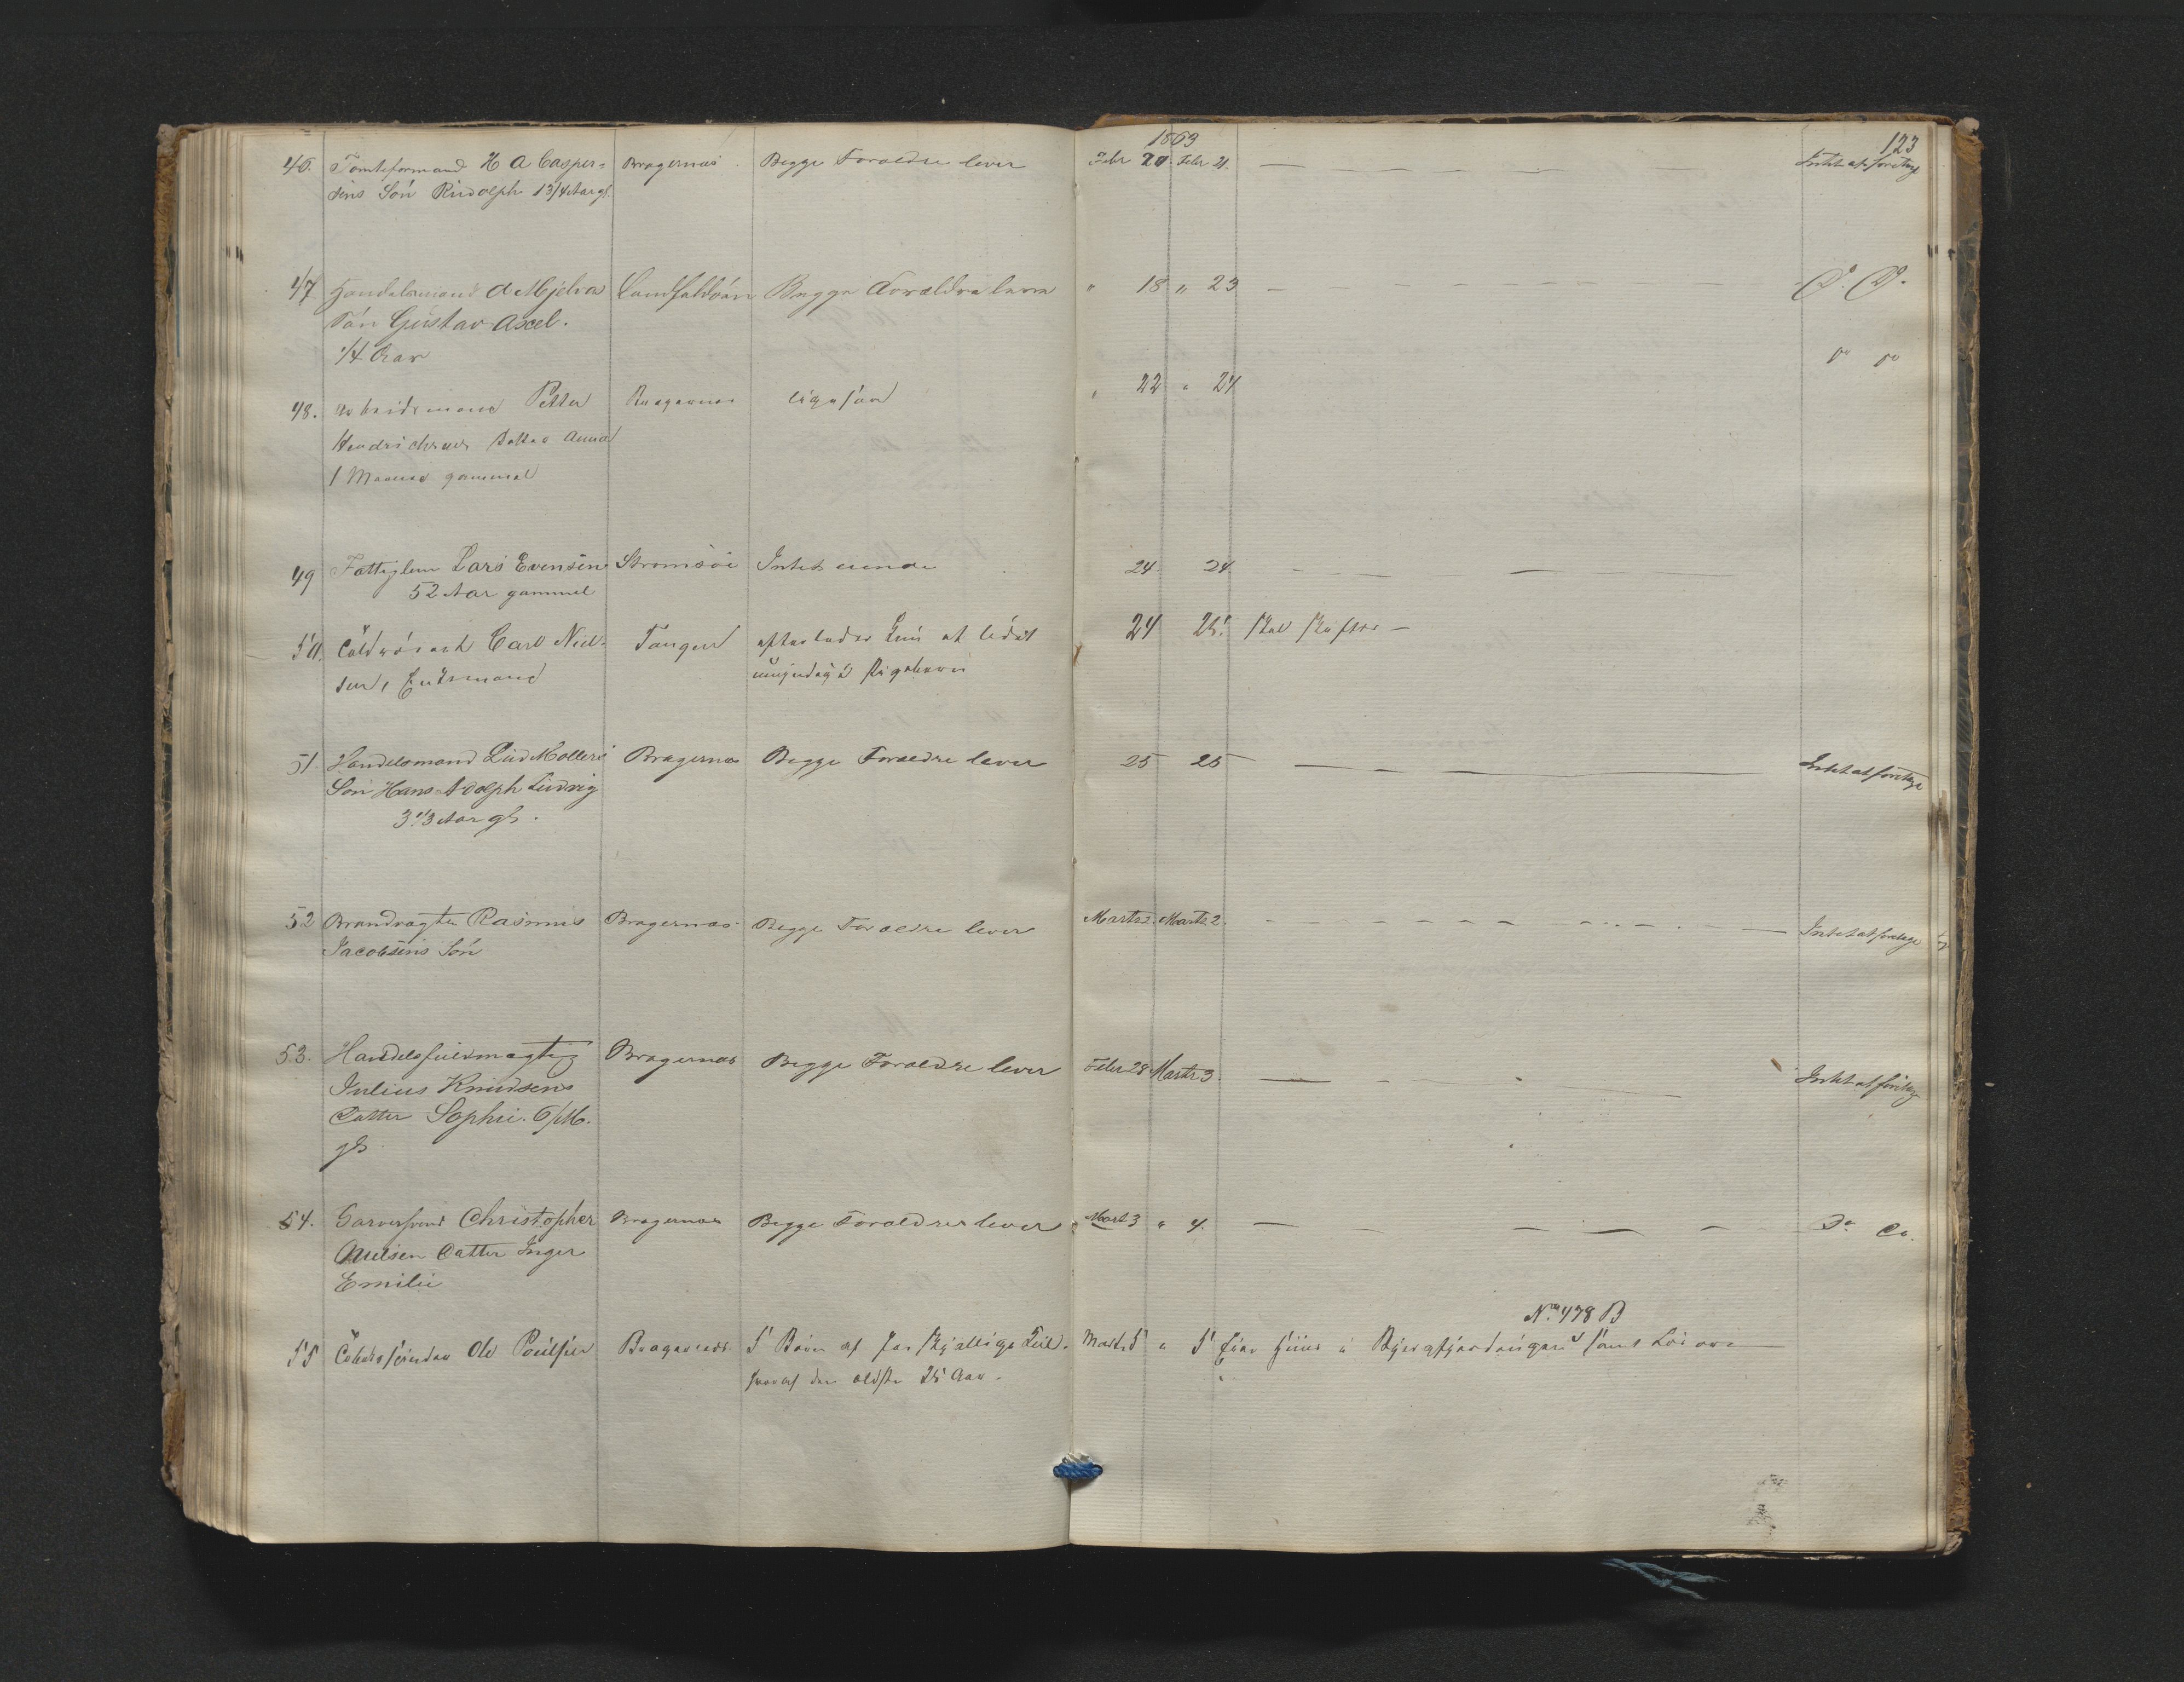 1863
123
46. Tomteformand H A Casper= Bragernæs Begge Forældre lever Febr 20. Febr 21. Intet at foretage
sens Søn Rudolph 1 3/4 Aar gl.
47 Handelsmand A Mjelva Landfaldøen Begge Forældre leve " 18 " 23 Do Do
Søn Gustav Axel.
1/4 Aar
do do
48. Arbeidsmand Petter Bragernæs ligesaa " 22 " 24
Hendrichsens Datter Anna
1 Maaned gammel
49 Fattiglem Lars Evensen Strømsøe Intet eiende 24 24
52 Aar gammel
50. Carl Niel= Tangen efterlader 24 25 Skal skiftes
sen, Enkemand
51. Handelsmand Lud Mollers Bragernæs Begge Forældre lever 25 25 Intet at foretage
Søn Hans Adolph Ludvig
3 1/3 Aar gl.
52 Brandvagter Rasmus Bragernæs Begge Forældre lever Marts 2. Marts 2. Intet at foretage
Jacobsens Søn
53. Handelsfuldmægtig Bragernæs Begge Forældre lever Febr 28 Marts 3. Intet at foretage
Julius Knudsens
Datter Sophie. 6/M.
gl.
54. Garversvend Christopher Bragernæs Begge Forældre lever Mart 3 " 4. Do Do.
Nielsen Datter Inger
Emilie
No 478 B
55 Ole Poulsen Bragernæs 5 Børn af Marts 5 " 5 Eier Huus i samt Løsøre
hvoraf den ældste 25 Aar.